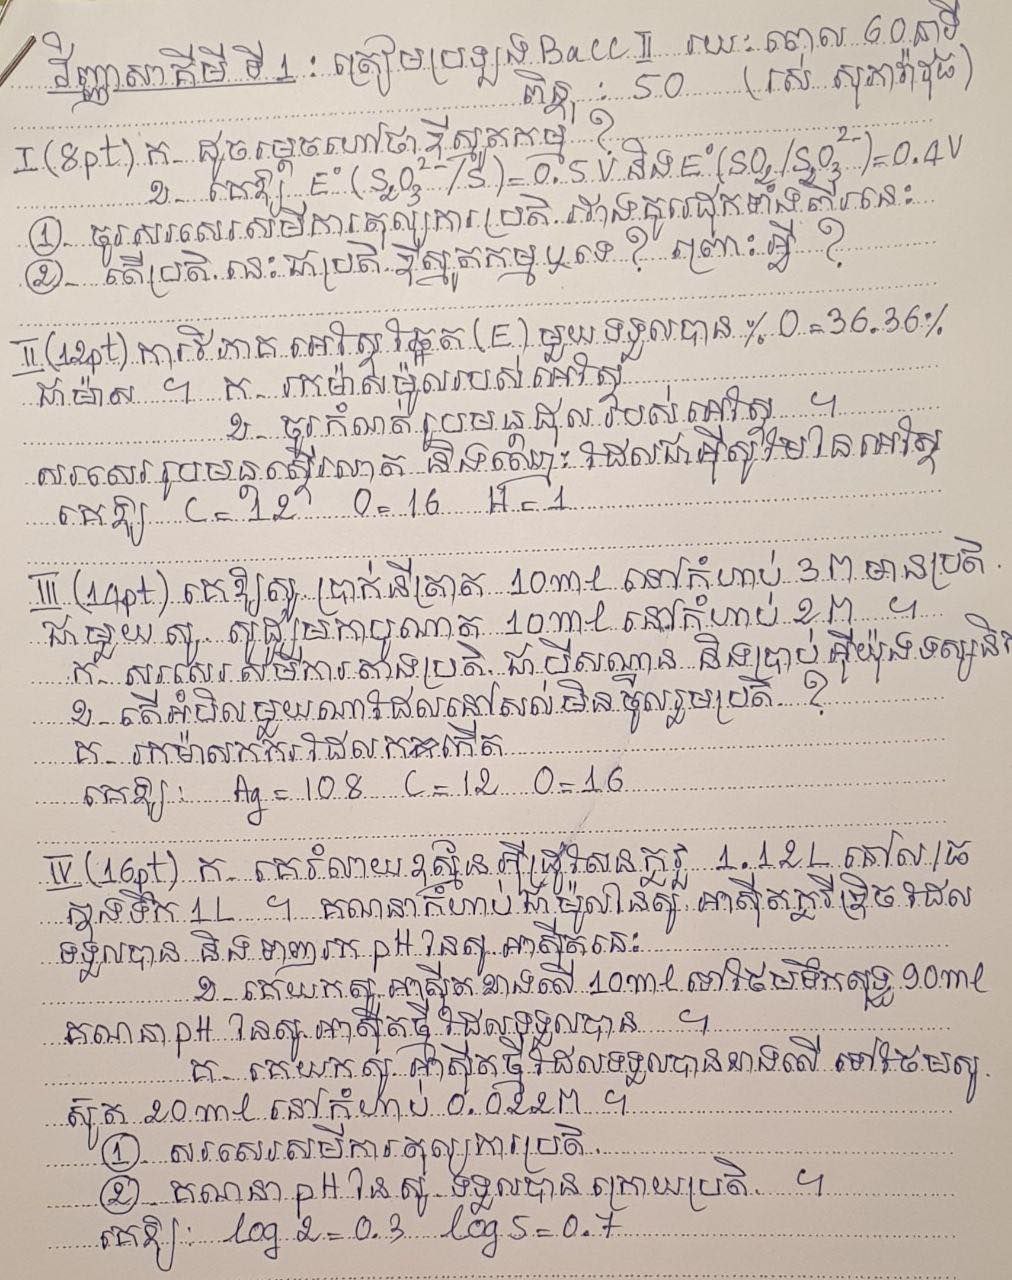 វិញ្ញាសាគីមី ទី 1 : ត្រៀមប្រឡង Bacc II រយៈពេល 60 នាទី
ពិន្ទុ : 50 (រស់ សុភាវ៉ាវុធ)
I (8pt) ក_ ដូចម្តេចហៅថា ឌីស្មូតកម្ម ?
ខ_ គេឱ្យ E°(S₂O₃²⁻/S) = 0.5 V និង E°(SO₂/S₂O₃²⁻) = 0.4 V
① ចូរសរសេរសមីការតុល្យការប្រតិ. រវាងគូរេដុកទាំងពីរនេះ
② តើប្រតិ. នេះជាប្រតិ. ឌីស្មូតកម្មឬទេ ? ព្រោះអ្វី ?
II (12pt) ការវិភាគ អេស្ទែឆ្អែត (E) មួយទទួលបាន % O = 36.36%
ជាម៉ាស ។ ក_ រកម៉ាសម៉ូលរបស់អេស្ទែ
ខ_ ចូរកំណត់រូបមន្តដុលរបស់អេស្ទែ ។
សរសេររូបមន្តស្ទើរលាត និងឈ្មោះ ដែលជាអ៊ីសូមែនៃអេស្ទែ
គេឱ្យ C = 12 O = 16 H = 1
III (14pt) គេឱ្យសូ. ប្រាក់នីត្រាត 10ml នៅកំហាប់ 3M មានប្រតិ.
ជាមួយសូ. សូដ្យូមកាបូណាត 10ml នៅកំហាប់ 2M ។
ក_ សរសេរសមីការតាងប្រតិ. ជាបីសណ្ឋាន និងប្រាប់អ៊ីយ៉ុងទស្សនិក
ខ_ តើអំបិលមួយណាដែលនៅសល់មិនចូលរួមប្រតិ. ?
គ_ រកម៉ាសកករដែលកកកើត
គេឱ្យ : Ag = 108 C = 12 O = 16
IV (16pt) ក_ គេរំលាយឧស្ម័នអ៊ីដ្រូសែនក្លរួ 1.12L នៅល/ធ
ក្នុងទឹក 1L ។ គណនាកំហាប់ជាម៉ូលនៃសូ. អាស៊ីតក្លរីឌ្រិចដែល
ទទួលបាន និងទាញរក pH នៃសូ. អាស៊ីតនេះ
ខ_ គេយកសូ. អាស៊ីតខាងលើ 10ml ទៅថែមទឹកសុទ្ធ 90ml
គណនា pH នៃសូ. អាស៊ីតថ្មីដែលទទួលបាន ។
គ_ គេយកសូ. អាស៊ីតថ្មីដែលទទួលបានខាងលើ ទៅថែមសូ.
ស៊ូត 20ml នៅកំហាប់ 0.022M ។
① សរសេរសមីការតុល្យការប្រតិ.
② គណនា pH នៃសូ. ទទួលបានក្រោយប្រតិ. ។
គេឱ្យ : log 2 = 0.3 log 5 = 0.7